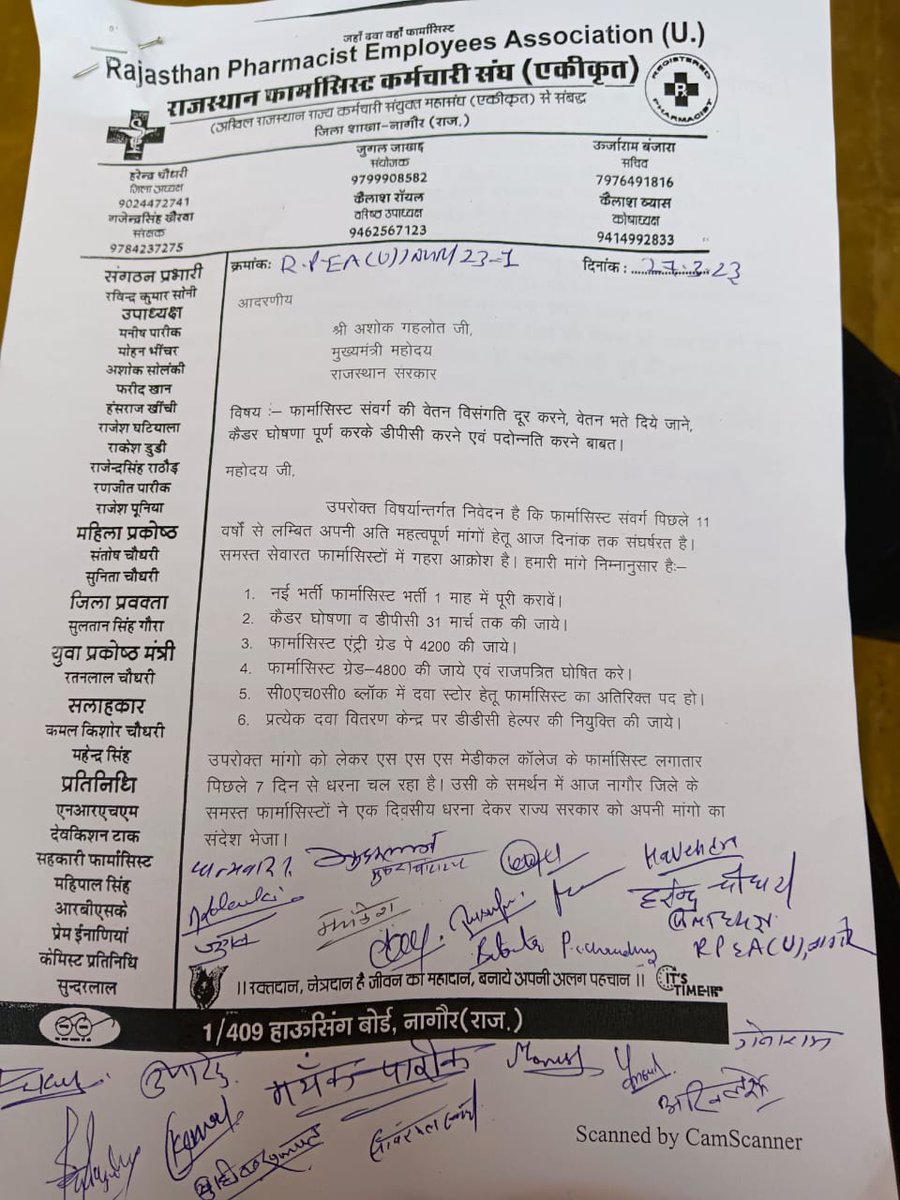 जहाँ दवा वहाँ फार्मासिस्ट
Rajasthan Pharmacist Employees Association (U.)
राजस्थान फार्मासिस्ट कर्मचारी संघ (एकीकृत)
(अखिल राजस्थान राज्य कर्मचारी संयुक्त महासंघ (एकीकृत) से संबद्ध
जिला शाखा-नागौर (राज.)
REGISTERED
PHARMACIST
हरेन्द्र चौधरी
जिला अध्यक्ष
9024472741
गजेन्द्रसिंह खैरवा
संरक्षक
9784237275
जुगल जाखड़
संयोजक
9799908582
कैलाश रॉयल
वरिष्ठ उपाध्यक्ष
9462567123
ऊर्जाराम बंजारा
सचिव
7976491816
कैलाश व्यास
कोषाध्यक्ष
9414992833
संगठन प्रभारी
रविन्द्र कुमार सोनी
उपाध्यक्ष
मनीष पारीक
मोहन भींचर
अशोक सोलंकी
फरीद खान
हंसराज खींची
राजेश घटियाला
राकेश डुडी
राजेन्द्रसिंह राठौड़
रणजीत पारीक
राजेश पूनिया
महिला प्रकोष्ठ
संतोष चौधरी
सुनिता चौधरी
जिला प्रवक्ता
सुलतान सिंह गौरा
युवा प्रकोष्ठ मंत्री
रतनलाल चौधरी
सलाहकार
कमल किशोर चौधरी
महेन्द्र सिंह
प्रतिनिधि
एनआरएचएम
देवकिशन टाक
सहकारी फार्मासिस्ट
महिपाल सिंह
आरबीएसके
प्रेम ईनाणियां
केमिस्ट प्रतिनिधि
सुन्दरलाल
क्रमांकः R.P.EA(U)/ 23-1
दिनांक : 27.3.23
आदरणीय
श्री अशोक गहलोत जी,
मुख्यमंत्री महोदय
राजस्थान सरकार
विषय :– फार्मासिस्ट संवर्ग की वेतन विसंगति दूर करने, वेतन भते दिये जाने,
कैडर घोषणा पूर्ण करके डीपीसी करने एवं पदोन्नति करने बाबत।
महोदय जी,
उपरोक्त विषर्यान्तर्गत निवेदन है कि फार्मासिस्ट संवर्ग पिछले 11
वर्षों से लम्बित अपनी अति महत्वपूर्ण मांगों हेतू आज दिनांक तक संघर्षरत है।
समस्त सेवारत फार्मासिस्टों में गहरा आक्रोश है। हमारी मांगे निम्नानुसार है:–
1. नई भर्ती फार्मासिस्ट भर्ती 1 माह में पूरी करावें।
2. कैडर घोषणा व डीपीसी 31 मार्च तक की जाये।
3. फार्मासिस्ट एंट्री ग्रेड पे 4200 की जाये।
4. फार्मासिस्ट ग्रेड–4800 की जाये एवं राजपत्रित घोषित करे।
5. सी0एच0सी0 ब्लॉक में दवा स्टोर हेतू फार्मासिस्ट का अतिरिक्त पद हो।
6. प्रत्येक दवा वितरण केन्द्र पर डीडीसी हेल्पर की नियुक्ति की जाये।
उपरोक्त मांगो को लेकर एस एस एस मेडीकल कॉलेज के फार्मासिस्ट लगातार
पिछले 7 दिन से धरना चल रहा है। उसी के समर्थन में आज नागौर जिले के
समस्त फार्मासिस्टों ने एक दिवसीय धरना देकर राज्य सरकार को अपनी मांगो का
संदेश भेजा।
धन्यवाद।
Harendra
हरेन्द्र चौधरी
RPEA(U), नागौर
।। रक्तदान, नेत्रदान है जीवन का महादान, बनाये अपनी अलग पहचान ।।
IT'S
TIME
1/409 हाऊसिंग बोर्ड, नागौर(राज.)
मयंक पारीक
अखिलेश
Scanned by CamScanner